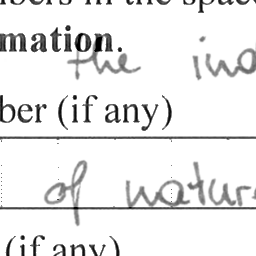 bers in the space
mation.
the ind
ber (if any)
of natur
(if any)